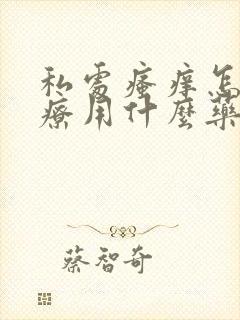 私處瘙痒怎
療用什麼藥
蔡智奇